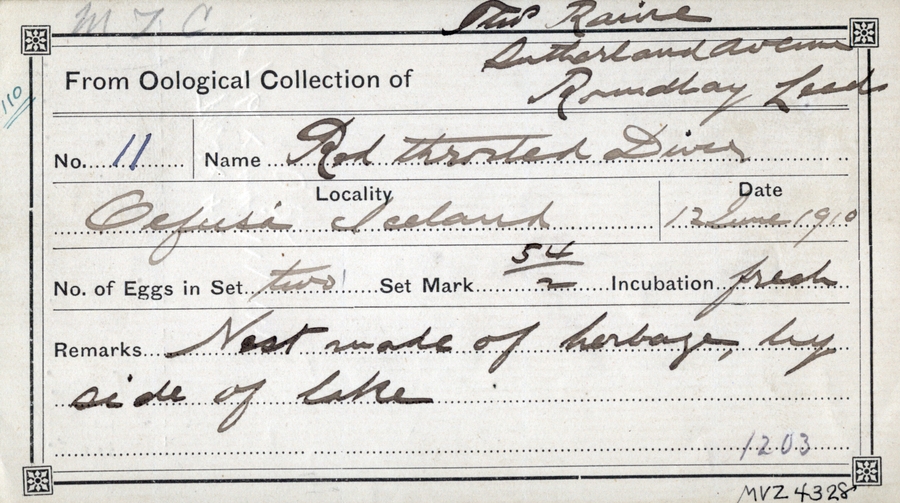 M T C
Thos Raine
Sutherland Avenue
From Oological Collection of Roundhay Leeds
110
No. 11 Name Red throated Diver
Locality Date
Oefusi Iceland 12 June 1910
No. of Eggs in Set two Set Mark 54/2 Incubation fresh
Remarks Nest made of herbage, by
side of lake
1203
MVZ 4328